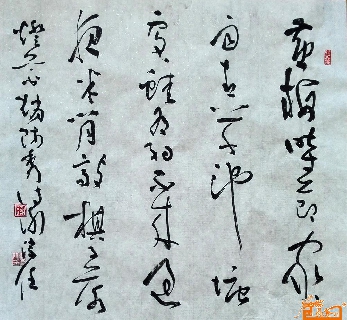 黄梅时节家家
雨青草池塘
处处蛙有约不来过
夜半闲敲棋子落
灯花 赵师秀诗